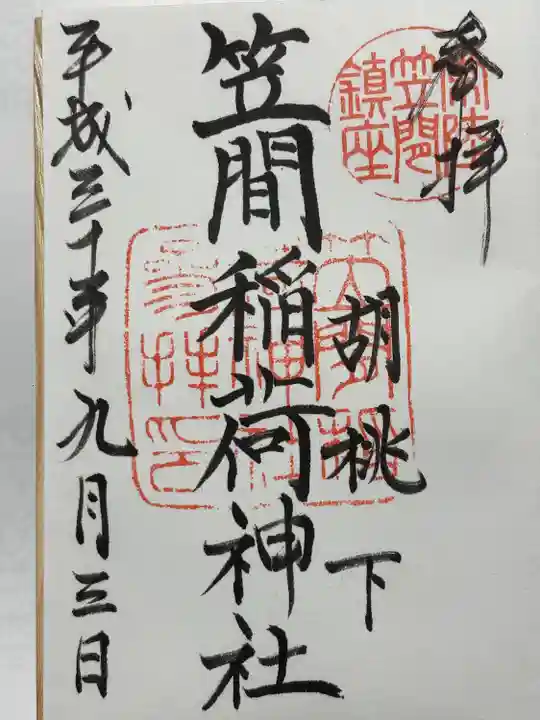 奉拝
常陸
笠間
鎮座
胡桃下
笠間稲荷神社
平成三十年九月三日